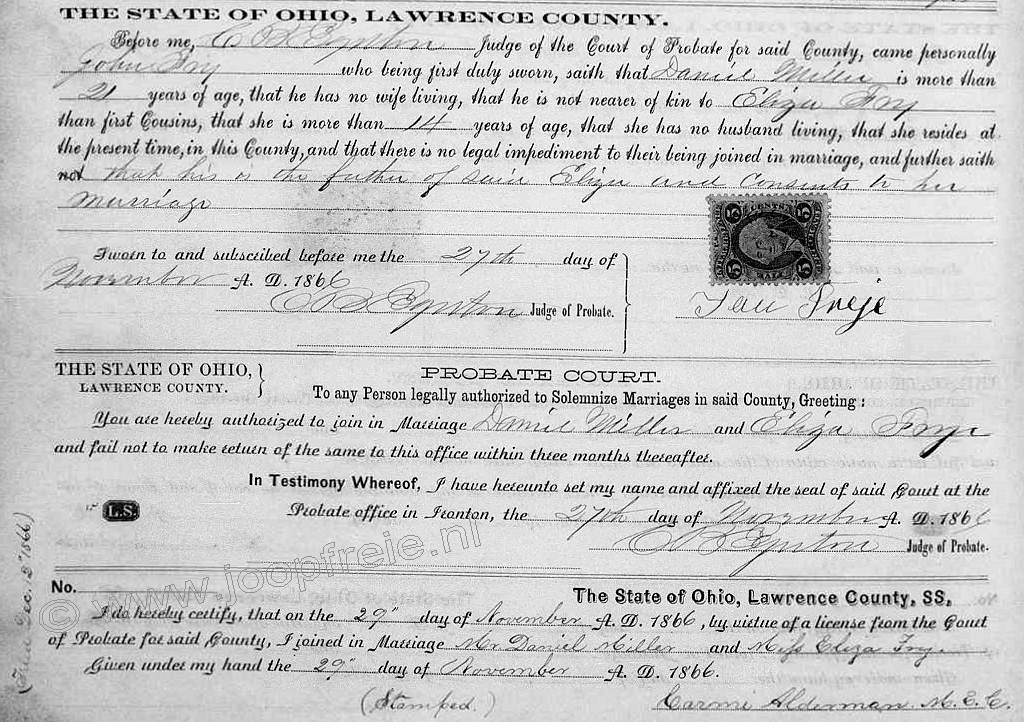 THE STATE OF OHIO, LAWRENCE COUNTY.
Before me, C B Egerton Judge of the Court of Probate for said County, came personally
John Fry who being first duly sworn, saith that Daniel Miller is more than
21 years of age, that he has no wife living, that he is not nearer of kin to Eliza Fry
than first Cousins, that she is more than 14 years of age, that she has no husband living, that she resides at
the present time, in this County, and that there is no legal impediment to their being joined in marriage, and further saith
not that he is the father of said Eliza and consents to her
marriage
5 CENTS 5
Sworn to and subscribed before me the 27th day of
November A. D. 1866
C B Egerton Judge of Probate.
Freje
THE STATE OF OHIO,
LAWRENCE COUNTY.
PROBATE COURT.
To any Person legally authorized to Solemnize Marriages in said County, Greeting:
You are hereby authorized to join in Marriage Daniel Miller and Eliza Frye
and fail not to make return of the same to this office within three months thereafter.
In Testimony Whereof, I have hereunto set my name and affixed the seal of said Court at the
L.S. Probate office in Ironton, the 27th day of November A. D. 1866
C B Egerton Judge of Probate.
© www.joopfreje.nl
(Filed Dec. 5" 1866)
No. The State of Ohio, Lawrence County, SS,
I do hereby certify, that on the 29" day of November A. D. 1866, by virtue of a license from the Court
of Probate for said County, I joined in Marriage Mr Daniel Miller and Miss Eliza Frye
Given under my hand the 29" day of November A. D. 1866.
(Stamped.) Carmi Alderman. M. E. C.